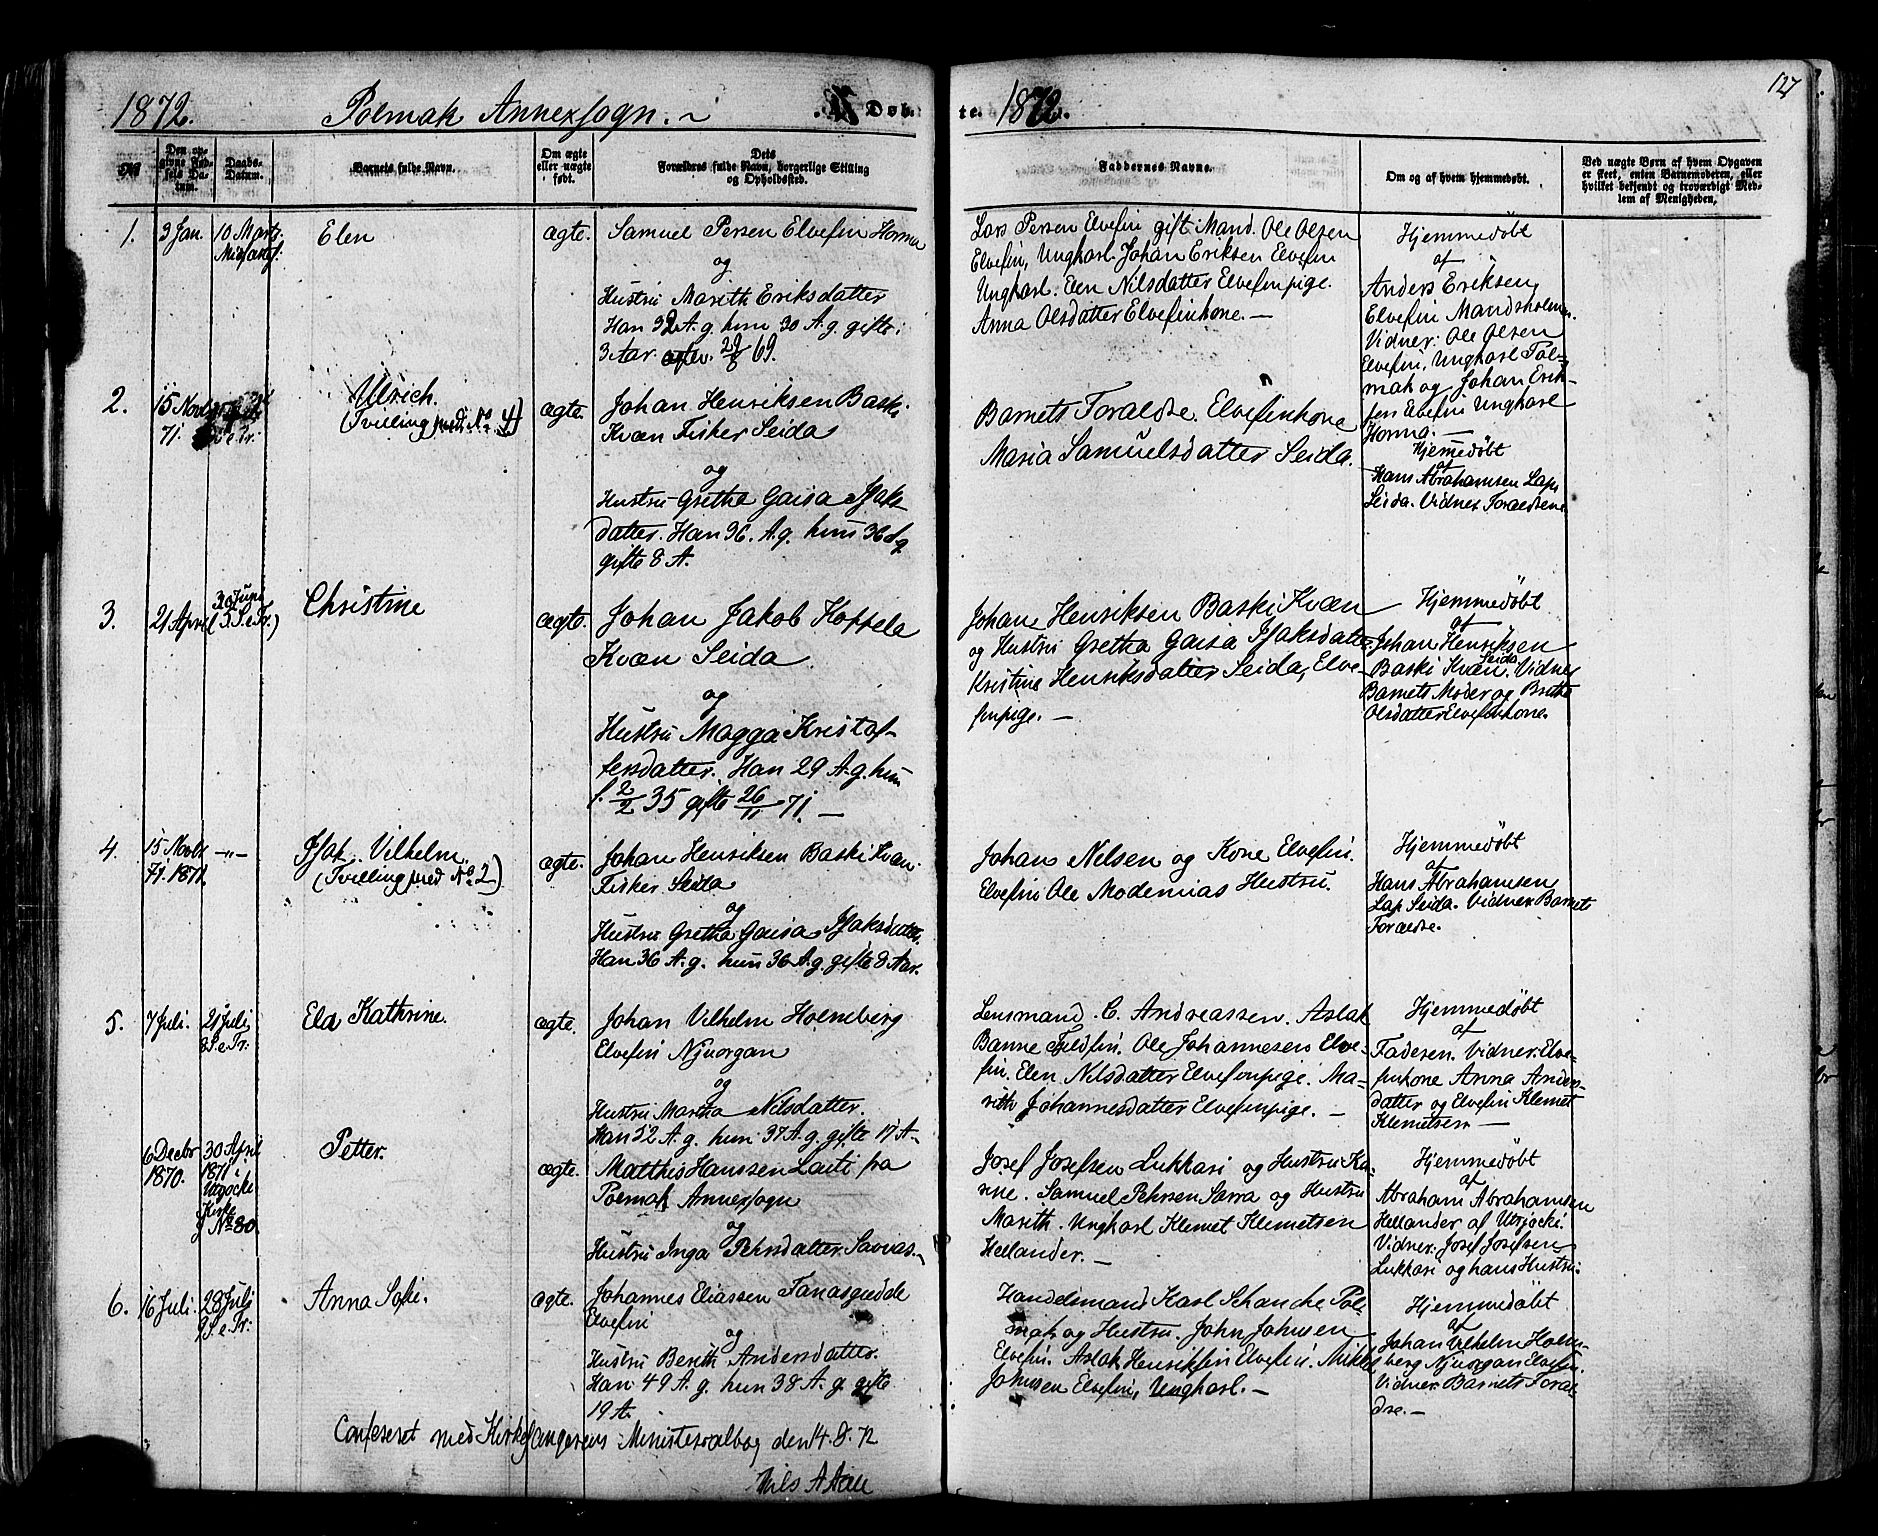 127
1872. Polmak Annexsogn. Døb-
te. 1872.
No
Den op-
givne Fød-
sels Da-
tum.
Daabs-
Datum.
Barnets fulde Navn.
Om ægte
eller uægte
født.
Dets
Forældres fulde Navn, borgerlige Stilling
og Opholdssted.
Faddernes Navne.
Om og af hvem hjemmedøbt.
Ved uægte Børn af hvem Opgaven
er skeet, enten Barnemoderen, eller
hvilket bekjendt og troværdigt Med-
lem af Menigheden.
1.
3 Jan.
10 Marts
Midfastes:
Elen
ægte.
Samuel Persen Elvefin Horma
og
Hustru Marith Eriksdatter
Han 32 A. g. hun 30 A. g. gifte:
3 Aar. 69.
Lars Persen Elvefin gift Mand. Ole Olsen
Elvefin, Ungkarl. Johan Eriksen Elvefin
Ungkarl. Elen Nilsdatter Elvefinpige.
Anna Olsdatter Elvefinkone. —
Hjemmedøbt
af
Anders Eriksen,
Elvefin Mandsholmen.
Vidner: Ole Olsen
Elvefin, Ungkarl Pol-
mak og Johan Erik-
sen Elvefin Ungkarl
Horma. —
2.
15 Novbr
71.
Ulrich.
(Tvilling med No. 4)
ægte.
Johan Henriksen Baski
Kvæn Fisker Seida
og
Hustru Gretha Gaisa Isaks
datter. Han 36. A. g. hun 36 A g
gifte 8 A.
Barnets Foraldre. Elvefinkone
Maria Samuelsdatter Seida.
Hjemedøbt
af
Hans Abrahamsen Lap
Seida. Vidner Foraldrene
3.
21 April
30 Juni
(5. S. e. Tr.)
Christine
ægte.
Johan Jakob Koppela
Kvæn Seida
og
Hustru Magga Kristof-
fersdatter. Han 29 A. g. hun
f. 2/2 35 gifte 26/11 71. —
Johan Henriksen Baski Kvæn
og Hustru Gretha Gaisa Isaksdatter
Kristine Henriksdatter Seida, Elve-
finpige. —
Hjemmedøbt
af
Johan Henriksen
Seida
Baski Kvæn. Vidner
Barnets Moder og Brithe
Olsdatter Elvefinkone.
4.
15 Novbr
71. 1871.
—"—
Isak Vilhelm.
(Tvilling med No. 2)
ægte.
Johan Henriksen Baski Kvæn.
Fisker Seida
og
Hustru Gretha Gaisa Isaksdatter.
Han 36 A. g. hun 36 A. g. gifte 8 Aar.
Johans Nelsen og Kone Elvefin.
Elvefin Ole Modenias Hustru.
Hjemmedøbt
af
Hans Abrahamsen
Lap Seida. Vidner Barnet
Foraldre.
5.
7 Juli.
21 Juli
8 S. e. Tr.
Ela Kathrine.
ægte.
Johan Vilhelm Holmberg
Elvefin Njuorgan
og
Hustru Martha Nilsdatter.
Han 52 A. g. hun 37 A. g. gifte 17 A-
Lensmand C. Andreassen. Aslak
Banne Fjeldfin. Ole Johannesen Elve-
fin. Elen Nilsdatter Elvefinpige. Ma-
rith Johannesdatter Elvefinpige. —
Hjemmedøbt
af
Faderen. Vidner: Elve-
finkone Anna Anders-
datter og Elvefin Klemet
Klemetsen —
6 Decbr
1870.
30 April
1871 i
Utsjocki
Kirke
No. 80.
Petter.
ægte.
Matthis Hanssen Laiti fra
Polmak Annexsogn
og
Hustru Inga Pehrsdatter Savvas.
Josef Josefsen Lukkari og Hustru Ka-
rine. Samuel Pehrsen Sarra og Hustru
Marith. Ungkarl Klemet Klemetsen
Hellander. —
Hjemmedøbt
af
Abraham Abrahamsen
Hellander af Utsjocki.
Vidner. Josef Josefsen
Lukkari og hans Hustru.
6.
16 Juli.
28 Juli
9 S. e. Tr:
Anna Sofi.
ægte.
Johannes Eliassen Tanasguedde
Elvefin
og
Hustru Berith Andersdatter.
Han 49 A. g. hun 38 A. g. gifte
19 A.
Handelsmand Karl Schanche Pol-
mak og Hustru. John Johnsen
Elvefin. Aslak Henriksen Elvefin. Mikkel
Johnsen Elvefin, Ungkarl. —
Hjemmedøbt
af
Johan Vilhelm Holm-
berg Njuorgan Elvefin.
Vidner. Barnets Foral
dre. —
Confereret med Kirkesangerens Ministerialbog den 14. 8. 72
Nils A Aall